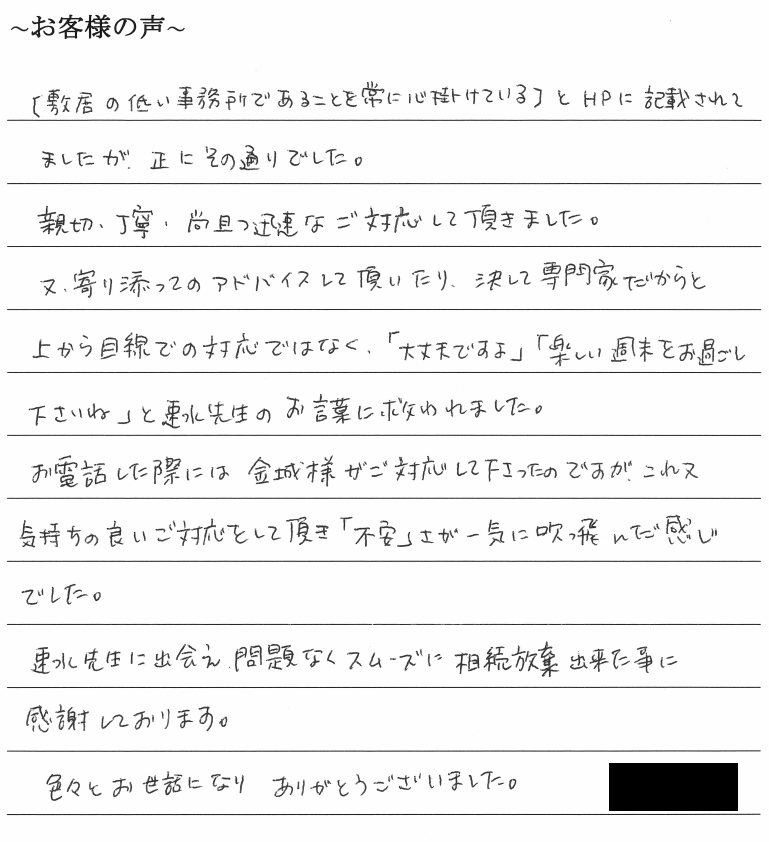 ~お客様の声~
［敷居の低い事務所であることを常に心掛けている］とHPに記載されて
ましたが、正にその通りでした。
親切、丁寧、尚且つ迅速なご対応して頂きました。
又、寄り添ってのアドバイスして頂いたり、決して専門家だからと
上から目線での対応ではなく、「大丈夫ですよ」「楽しい週末をお過ごし
下さいね」と速水先生のお言葉に救われました。
お電話した際には 金城様がご対応して下さったのですが、これ又
気持ちの良いご対応をして頂き「不安」さが一気に吹っ飛んだ感じ
でした。
速水先生に出会え、問題なくスムーズに相続放棄出来た事に
感謝しております。
色々とお世話になり ありがとうございました。